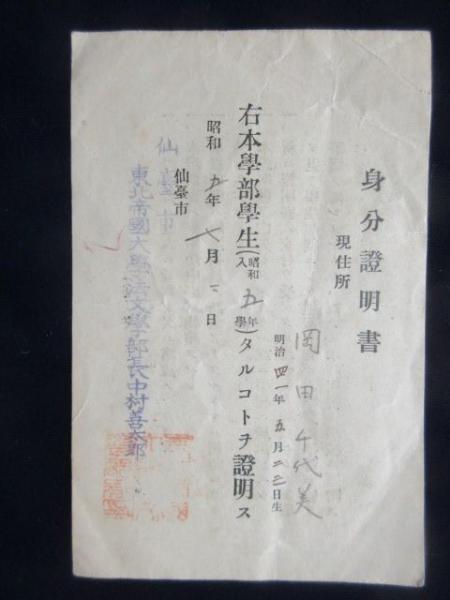 身分證明書
現住所
岡田千代美
明治四一年五月二二日生
右本學部學生(昭和五年入學)タルコトヲ證明ス
昭和五年 月 日
仙臺市
仙臺市
東北帝國大學法文學部長中村善太郎